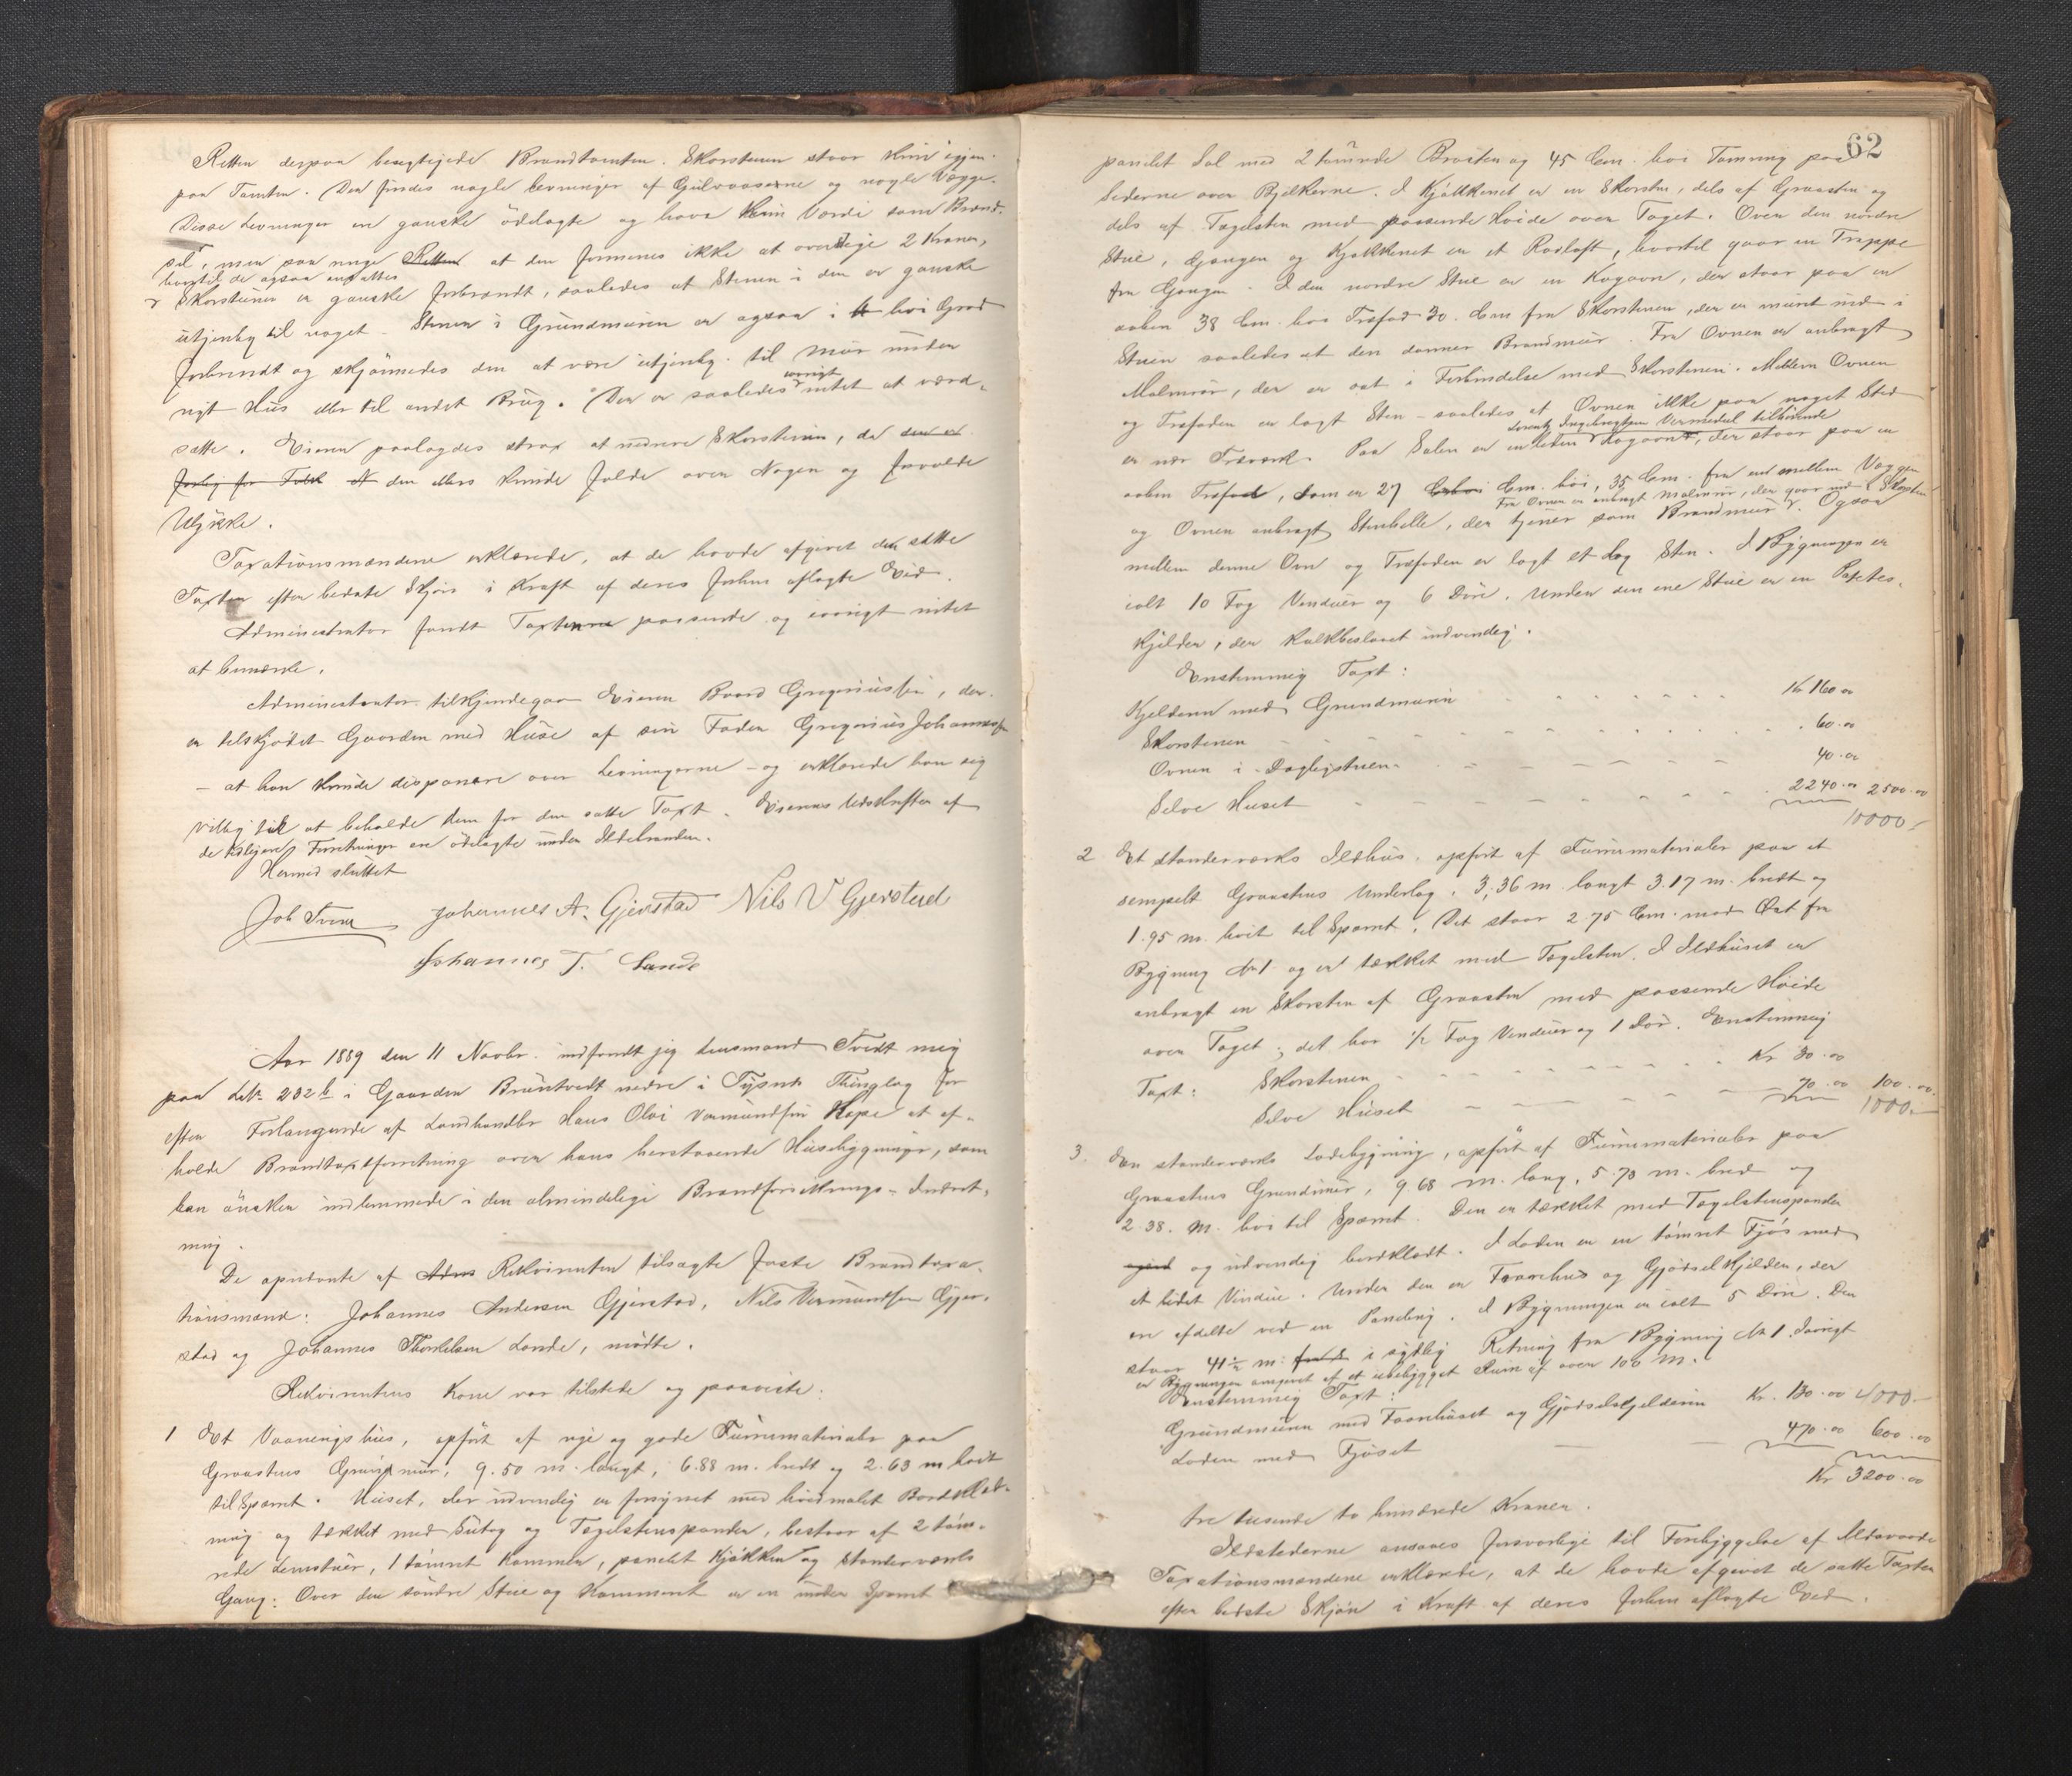 Retten derpaa besigtigede Brandtomten. Skorstenen staar kun igjen
paa Tomten. Der findes nogle Levninger af Gulvaaserne og nogle Vægge.
Disse Levninger er ganske ödelagte og have kun Værdi som Brænd-
sel, men saa meget Retten at den formenes ikke at overstige 2 Kroner,
hvortil de ogsaa ansættes
Skorstenen er ganske forbrændt, saaledes at Stenen i den er ganske
utjenlig til noget. Stenen i Grundmuren er ogsaa i höi Grad
forbrændt og skjönnedes den at være utjenlig til Mur under
nyt Hus eller til andet Brug. Der er saaledes intet at værd-
övrigt
sætte. Eieren paalagdes strax at nedrive Skorstenen, da den er
farlig for Folk at den ellers kunde falde over Nogen og forvolde
Ulykke.
Taxationsmændene erklærede, at de havde afgivet den satte
Taxten efter bedste Skjön i Kraft af deres forhen aflagte Ed.
Administrator fandt Taxterne passende og iövrigt intet
at bemærke.
Administrator tilkjendegav Eieren Baard Gregoriussen, der
er tilskjödet Gaarden med Huse af sin Fader Gregorius Johannessen
– at han kunde disponere over Levningerne – og erklærede han sig
villig til at beholde dem for den satte Taxt. Eierens Udskrifter af
de tidligere Forretninger ere ödelagte under Ildebranden.
Hermed sluttet
Joh Tvedt Johannes A. Gjerstad Nils V Gjerstad
Johannes T. Lande
Aar 1889 den 11 Novbr. indfandt jeg Lensmand Tvedt mig
paa LNr. 232 b i Gaarden Bruntvedt nedre i Tysnes Thinglag for
efter Forlangende af Landhandler Hans Olai Vermundsen Hope at af-
holde Brandtaxtforretning over hans herstaaende Husebygninger, som
han önsker indlemmede i den almindelige Brandforsikrings-Indret-
ning.
De opnævnte af Adms Rekvirenten tilsagte faste Brandtaxa-
tionsmænd: Johannes Andersen Gjerstad, Nils Vermundsen Gjer-
stad og Johannes Thorkelsen Lande, mödte.
Rekvirentens Kone var tilstede og paaviste:
1 Et Vaaningshus, opfört af nye og gode Furumaterialer paa
Graastens Grundmur, 9.50 m. langt, 6.88 m. bredt og 2.63 m höit
til Spærret. Huset, der udvendig er forsynet med hvidmalet Bordklæd-
ning og tækket med Sutag og Taglstenspander, bestaar af 2 töm-
rede Lemstuer, 1 tömret Kammer, panelet Kjökken og standerværks
Gang. Over den söndre Stue og Kammeret er en under Spærret
62
panelet Sal med 2 tömrede Bröster og 45 Cm. höi Tömring paa
Siderne over Bjelkerne. I Kjökkenet er en Skorsten, dels af Graasten og
dels af Taglsten med passende Höide over Taget. Over den nordre
Stue, Gangen og Kjökkenet er et Rosloft, hvortil gaar en Trappe
fra Gangen. I den nordre Stue er en Kogovn, der staar paa en
aaben 38 Cm. höi Træfod 30 Cm fra Skorstenen, der er muret ind i
Stuen saaledes at den danner Brandmur. Fra Ovnen er anbragt
Malmrör, der er sat i Forbindelse med Skorstenen. Mellem Ovnen
og Træfoden er lagt Sten – saaledes at Ovnen ikke paa noget Sted
er nær Træværk. Paa Salen er en liden Kogovn, der staar paa en
tilhörende
aaben Træfod, som er 27 Cm. höi, 35 Cm. fra mellem Væggen
og Ovnen anbragt Stenhelle, der tjener som Brandmur. Ogsaa
Fra Ovnen er anbragt Malmrör, der gaar ind i Skorsten
mellem denne Ovn og Træfoden er lagt et Lag Sten. I Bygningen er
ialt 10 Fag Vinduer og 6 Döre. Under den ene Stue er en Potetes-
kjelder, der kalkbeslaaet indvendig.
Enstemmig Taxt:
Kjelderen med Grundmuren Kr 160.00
Skorstenen 60.00
Ovnen i Dagligstuen 40.00
Selve Huset 2240.00 2500.00
10000
2 Et standerværks Ildhus, opfört af Furumaterialer paa et
simpelt Graastens Underlag, 3.36 m. langt 3.17 m. bredt og
1.95 m. höit til Spærret. Det staar 2.75 Cm. mod Öst fra
Bygning No 1 og er tækket med Taglsten. I Ildhuset er
anbragt en Skorsten af Graasten med passende Höide
over Taget; det har 1/2 Fag Vinduer og 1 Dör. Enstemmig
Taxt: Skorstenen Kr. 30.00
Selve Huset 70.00 100.00
1000
3. En standerværks Ladebygning, opfört af Furumaterialer paa
Graastens Grundmur, 9.68 m. lang, 5.73 m. bred og
2.38. m. höi til Spærret. Den er tækket med Taglstenspander
og udvendig bordklædt. I Laden er en tömret Fjös med
et lidet Vindue. Under den er Faarehus og Gjödselkjelder, der
er afdelte ved en Paneling. I Bygningen er ialt 5 Döre. Den
staar 41 1/2 m. i sydlig Retning fra Bygning No 1. Iövrigt
er Bygningen omgivet af et ubebygget Rum af over 100 m.
Enstemmig Taxt:
Grundmuren med Faarehuset og Gjödselkjelderen Kr. 130.00 4000
Laden med Fjöset 470.00 600.00
Kr 3200.00
tre tusende to hundrede Kroner.
Ildstederne ansaaes forsvarlige til Forebyggelse af Ildsvaade
Taxationsmændene erklærede, at de havde afgivet de satte Taxter
efter bedste Skjön i Kraft af deres forhen aflagte Ed.